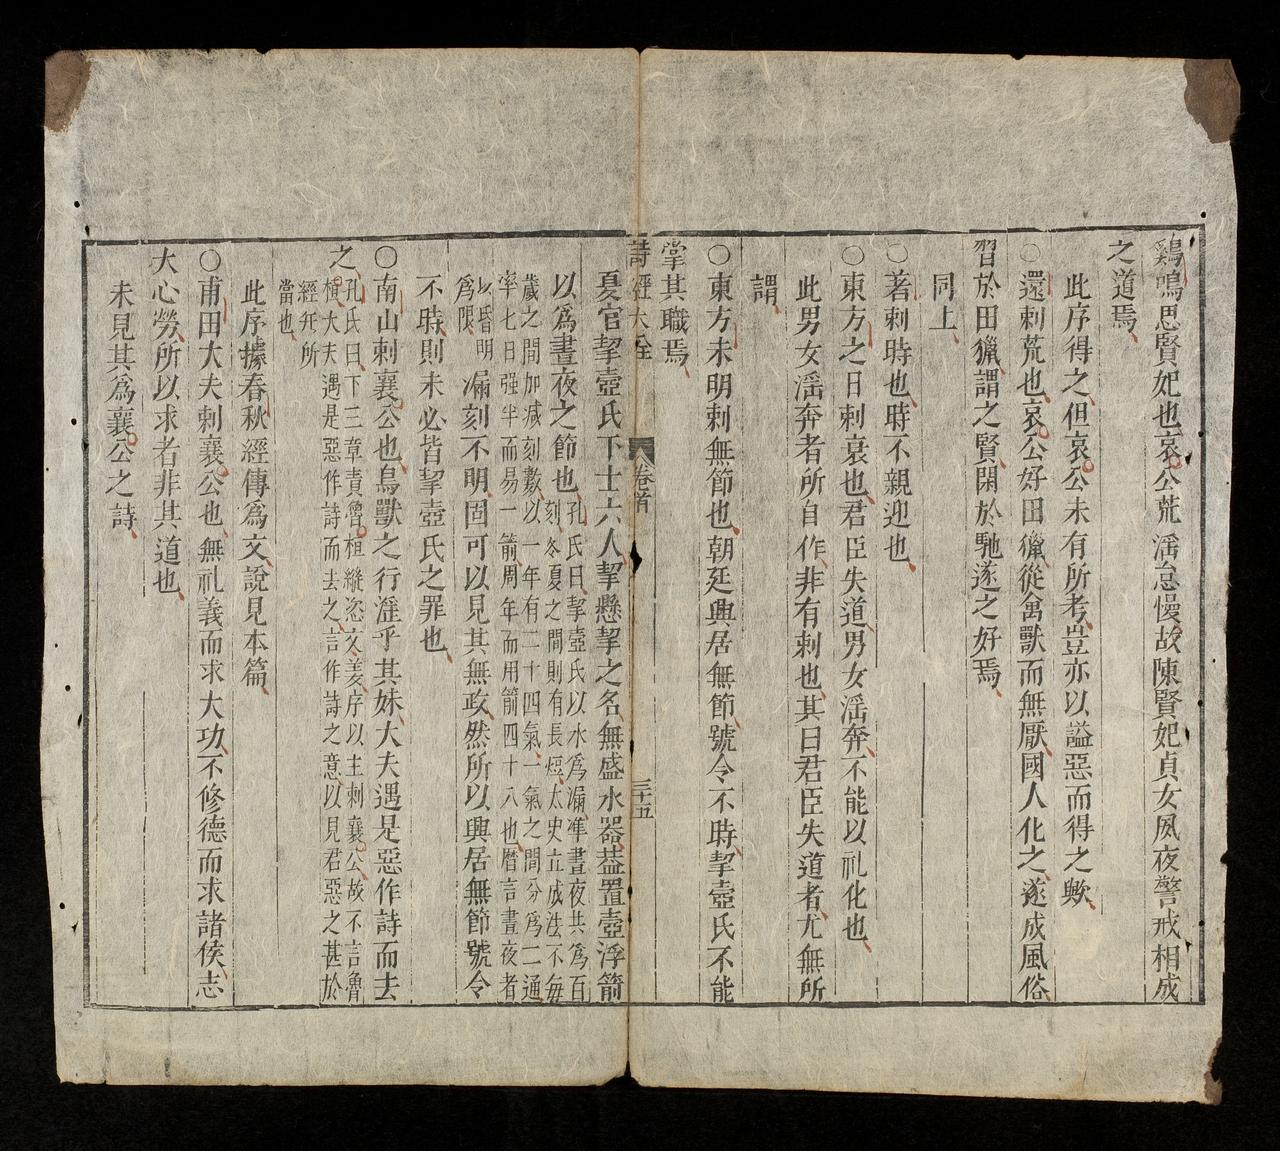 鷄鳴思賢妃也哀公荒滛怠慢故陳賢妃貞女夙夜警戒相成
之道焉
此序得之但哀公未有所考豈亦以謚惡而得之歟
○還刺荒也哀公好田獵從禽獸而無厭國人化之遂成風俗
習於田獵謂之賢閑於馳逐之好焉
同上
○著刺時也時不親迎也
○東方之日刺衰也君臣失道男女滛奔不能以礼化也
此男女滛奔者所自作非有刺也其曰君臣失道者尤無所
謂
○東方未明刺無節也朝廷興居無節號令不時挈壺氏不能
掌其職焉
詩經大全 卷首 三十五
夏官挈壺氏下士六人挈懸挈之名無盛水器葢置壺浮箭
以爲晝夜之節也孔氏曰挈壺氏以水爲漏凖晝夜共爲百
刻冬夏之間則有長短太史立成法不毎
歲之間加减刻數以一年有二十四氣一氣之間分爲二通
率七日强半而易一箭周年而用箭四十八也暦言晝夜者
以昏明
爲限
漏刻不明固可以見其無政然所以興居無節號令
不時則未必皆挈壺氏之罪也
○南山刺襄公也鳥獸之行淫乎其妹大夫遇是惡作詩而去
之孔氏曰下三章責魯桓縱恣文姜序以主刺襄公故不言魯
桓大夫遇是惡作詩而去之言作詩之意以見君惡之甚於
經所
當也
此序據春秋經傳爲文說見本篇
○甫田大夫刺襄公也無礼義而求大功不修德而求諸侯志
大心勞所以求者非其道也
未見其爲襄公之詩